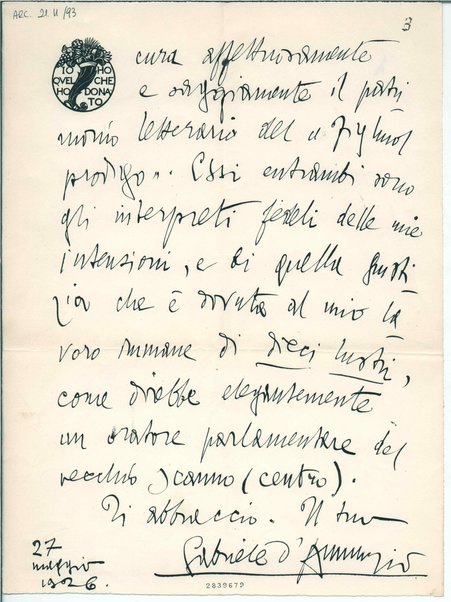 ARC. 21.II/93
3
IO HO
QVEL CHE
HO DONA
TO
cura affettuosamente
e saggiamente il patri
monio letterario del "Figliuol
prodigo". Essi entrambi sono
gli interpreti fedeli delle mie
intensioni, e di quella giusti
zia che è dovuta al mio la
voro immane di dieci lustri,
come direbbe elegantemente
un oratore parlamentare del
vecchio scanno (centro).
Ti abbraccio. Il tuo
Gabriele d'Annunzio
27
maggio
1926.
2839679